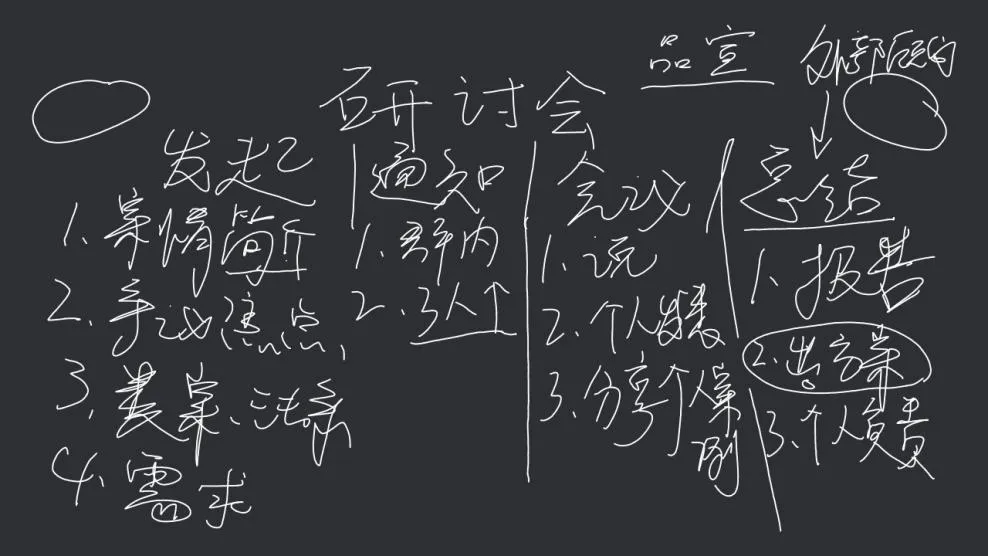 品宣
研讨会
发起
1.案情简介
2.争议焦点
3.类案、法条
4.需求
通知
1.群内
2.3人↑
会议
1.说
2.个人发表
3.分享个人案例
总结
1.报告
2.出方案
3.个人负责